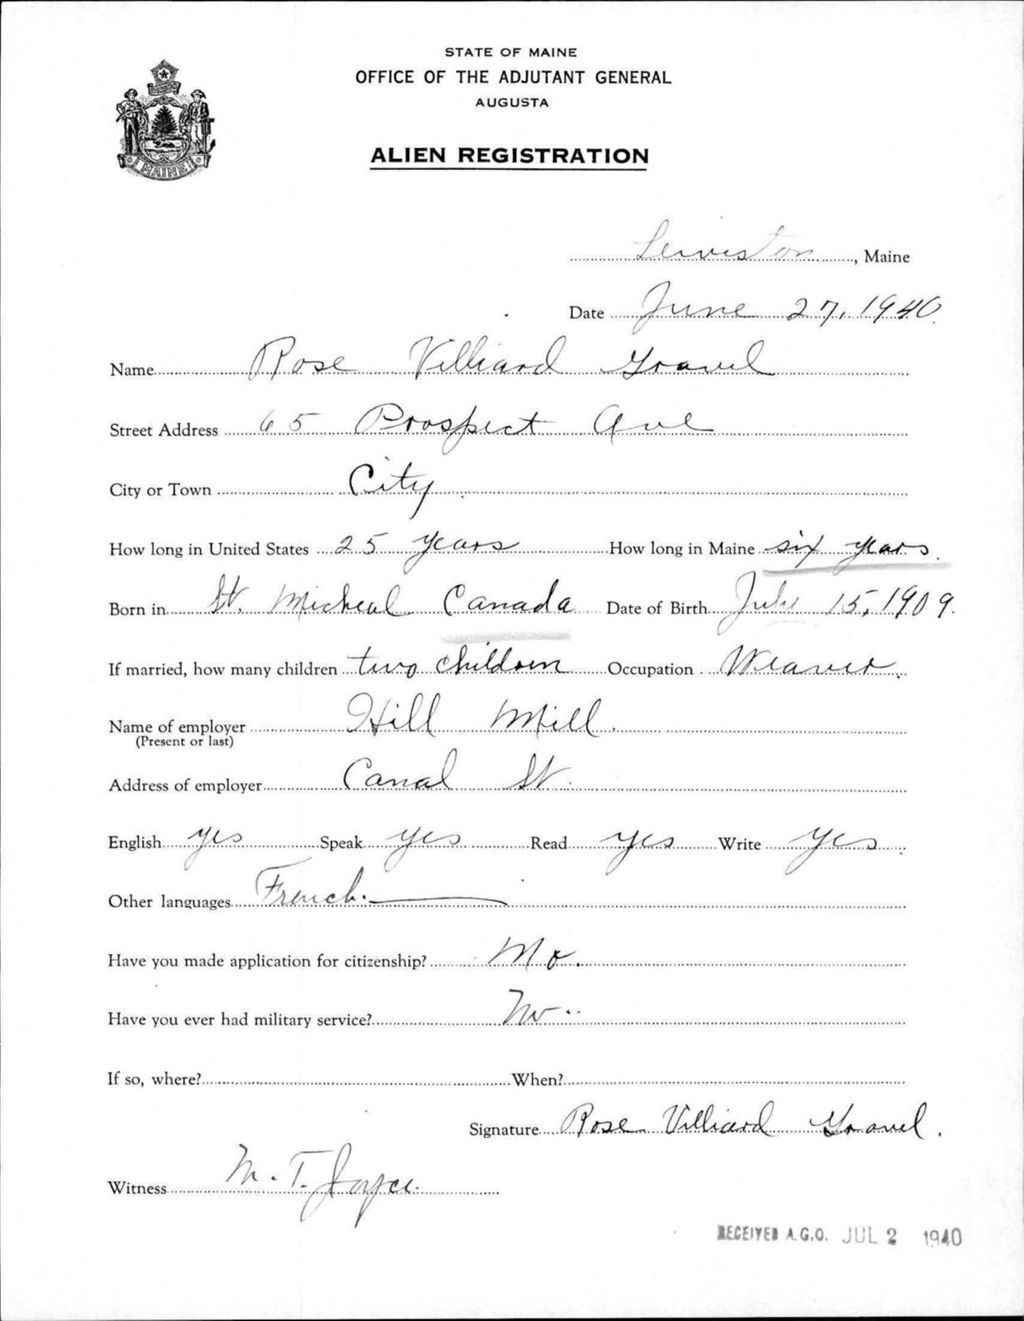 STATE OF MAINE
OFFICE OF THE ADJUTANT GENERAL
AUGUSTA
ALIEN REGISTRATION
MAINE
Lewiston, Maine
Date June 27, 1940
Name Rose Villiard Gravel
Street Address 65 Prospect Ave
City or Town City
How long in United States 25 years How long in Maine six years.
Born in St. Micheal Canada Date of Birth July 15, 1909.
If married, how many children two children Occupation Weaver.
Name of employer Hill Mill.
(Present or last)
Address of employer Canal St.
English yes Speak yes Read yes Write yes
Other languages French.
Have you made application for citizenship? No.
Have you ever had military service? No
If so, where? When?
Signature Rose Villiard Gravel.
Witness M. T. Joyce.
RECEIVED A.G.O. JUL 2 1940